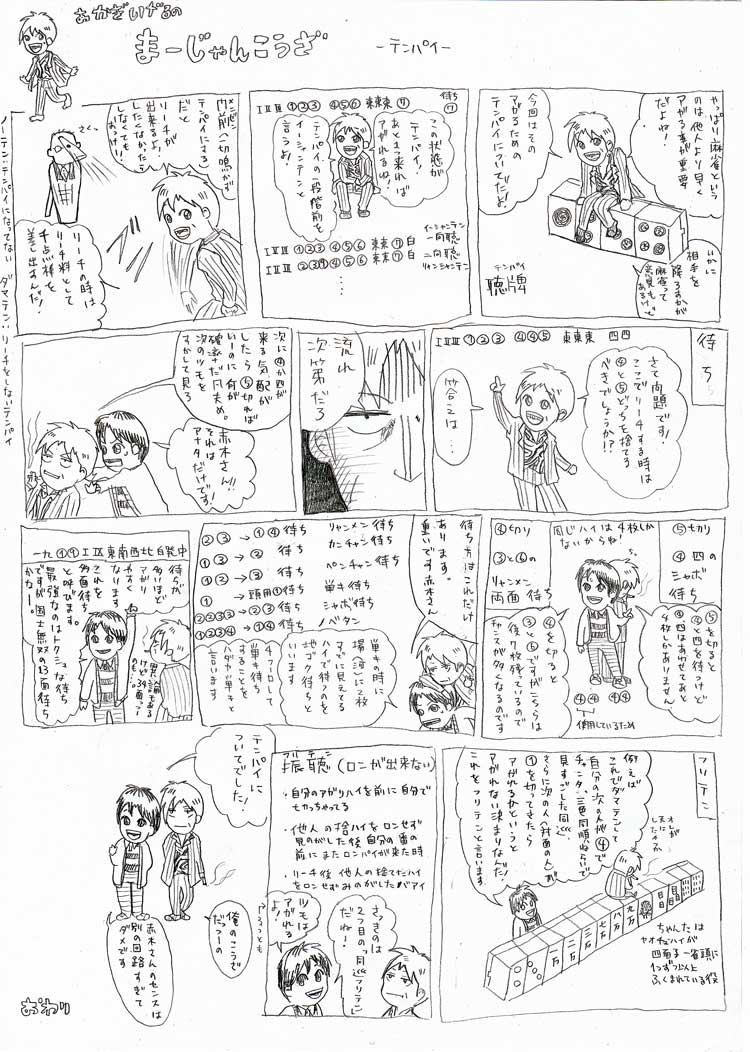 あかぎしげるの
まーじゃんこうざ
ーテンパイー
やっぱり麻雀という
のは他人より早く
アガる事が重要
だよね!
今回はその
アガるための
テンパイについてだよ!
いかに
相手を
降ろすかが
麻雀って
意見も
あるけど
テンパイ
聴牌
ⅠⅡⅢ ①②③ ④⑤⑥ 東東東 ⑦
待ち
⑦
この状態が
テンパイ!
あと1つ来れば
アガれるね!
テンパイの一段階前を
イーシャンテンと
言うよ!
イーシャンテン
一向聴
ⅠⅡⅢ ①②③ ④⑤⑥ 東東 ⑦ 白
二向聴
リャンシャンテン
メンゼン
門前(一切鳴かず)
テンパイにする
だと
リーチが
出来るよ!
したくなかったら
しなくても
おっけー!
さくっ
リーチの時は
リーチ料として
千点棒を
差し出すんだ!
ノーテン:テンパイになってない
ダマテン:リーチをしないテンパイ
待ち
ⅠⅡⅢ ①②③ ④④⑤ 東東東 四四
さて問題です!
ここでリーチする時は
④と⑤どっちを捨てる
べきでしょうか!?
答えは…
流れ
次第だろ
次に④か四が
来る気配が
したら⑤切れば
いーのに何が
確率だ凡夫め。
次のツモを
すかして見ろ
赤木さん!!
それは
アナタだけです!
⑤切り
④ 四の
シャボ
待ち
同じハイは4枚しか
ないからね!
④切り
③と⑥の
リャンメン
両面待ち
⑤を切ると
④と四を待つけど
④四はあわせてあと
4枚しかありません
④を切ると
③と⑥ですがこちらは
後7枚待っているので
チャンスが多くなるのです
④④ ④④
使用しているため
待ち方はこれだけ
あります。
重いです赤木さん
②③→①④待ち リャンメン待ち
①③→②待ち カンチャン待ち
①②→③待ち ペンチャン待ち
①→頭用①待ち 単キ待ち
②②③③→②③待ち シャボ待ち
①②③④→①④待ち ノベタン
単キの時に
場(河)に2枚
すでに見えてる
ハイで待つのを
地ゴク待ちと
いいます
4つフロして
単キ待ち
することを
ハダカ単キと
言います
一九①⑨ⅠⅨ東南西北白発中
待ちが
多いほど
アガり
やすく
なります
これを
多面待ち
と呼びます。
最強なのはトクシュな待ち
ですが国士無双の13面待ち
かなー。
フリテン
例えば
これでダマテンして
自分の次の人が④で
チャンタ、三色同順ねらいで
見すごした同巡、
さらに次の人(対面の人)が
①を切ってきたら
アガれるかというと
アガれない決まりなんだ!
これをフリテンと言います。
一万 一万 二万 三万 七万 八万 九万
ちゃんたは
ヤオチュウハイが
四面子一雀頭に
ひとつ以上
ふくまれている役
フリテン
振聴(ロンが出来ない)
・自分のアガりハイを前に自分で
もう切っちゃってる
・他人の捨ハイをロンせず
見のがした後自分の番の
前にまたロンパイが来た時
・リーチ後 他人の捨てたハイ
をロンせずみのがしたバアイ
さっきのは
2つ目のっ同巡フリテン
だね!
ツモは
アガれる
よ!
テンパイに
ついてでした!
俺のこうざ
だっつーの
赤木さんのセンスは
別の回路すぎて
ダメです
おわり